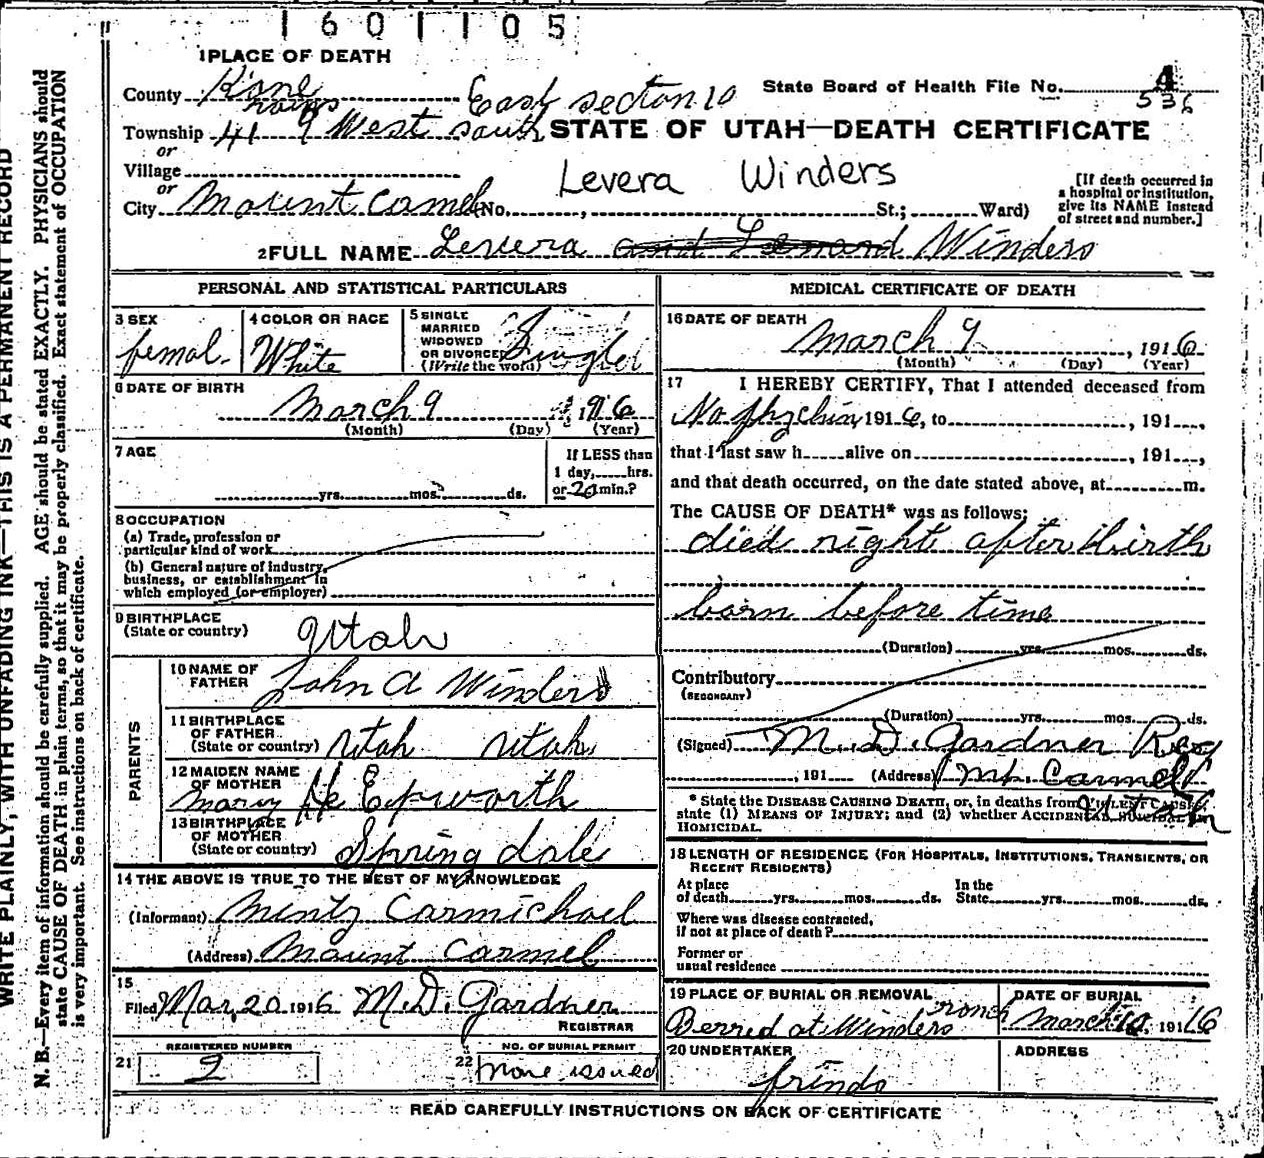 1601105
1 PLACE OF DEATH
County Kane East section 10
State Board of Health File No. 4
536
Township 41 9 West south
STATE OF UTAH—DEATH CERTIFICATE
or
Village
Levera Winders
or
City Mount Carmel (No. , St.; Ward)
[If death occurred in a hospital or institution, give its NAME instead of street and number.]
2 FULL NAME Levera and Lenard Winders
PERSONAL AND STATISTICAL PARTICULARS
3 SEX
femal
4 COLOR OR RACE
White
5 SINGLE
MARRIED
WIDOWED
OR DIVORCED
(Write the word)
Singled
6 DATE OF BIRTH
March 9 1916
(Month) (Day) (Year)
7 AGE
yrs. mos. ds.
If LESS than
1 day, hrs.
or 20 min.?
8 OCCUPATION
(a) Trade, profession or
particular kind of work
(b) General nature of industry,
business, or establishment in
which employed (or employer)
9 BIRTHPLACE
(State or country) Utah
PARENTS
10 NAME OF
FATHER John A Winders
11 BIRTHPLACE
OF FATHER
(State or country) Utah Utah
12 MAIDEN NAME
OF MOTHER
Mary He Epworth
13 BIRTHPLACE
OF MOTHER
(State or country) Spring dale
14 THE ABOVE IS TRUE TO THE BEST OF MY KNOWLEDGE
(Informant) Mintz Carmichael
(Address) Mount Carmel
15
Filed Mar, 20 1916 M. D. Gardner
REGISTRAR
REGISTERED NUMBER
21 2
NO. OF BURIAL PERMIT
22 none issued
MEDICAL CERTIFICATE OF DEATH
16 DATE OF DEATH
March 9, 1916
(Month) (Day) (Year)
17 I HEREBY CERTIFY, That I attended deceased from
No 1916, to , 191 ,
that I last saw h alive on , 191 ,
and that death occurred, on the date stated above, at m.
The CAUSE OF DEATH* was as follows:
died right after birth
born before time
(Duration) yrs. mos. ds.
Contributory
(SECONDARY)
(Duration) yrs. mos. ds.
(Signed) M. D. Gardner Reg
, 191 (Address) Mt. Carmel
Utah
* State the DISEASE CAUSING DEATH, or, in deaths from VIOLENT CAUSES,
state (1) MEANS OF INJURY; and (2) whether ACCIDENTAL, SUICIDAL OR
HOMICIDAL.
18 LENGTH OF RESIDENCE (FOR HOSPITALS, INSTITUTIONS, TRANSIENTS, OR
RECENT RESIDENTS)
At place
of death yrs. mos. ds.
In the
State yrs. mos. ds.
Where was disease contracted,
if not at place of death?
Former or
usual residence
19 PLACE OF BURIAL OR REMOVAL
Berred at Winders ranch
DATE OF BURIAL
March 10 1916
20 UNDERTAKER
frinds
ADDRESS
READ CAREFULLY INSTRUCTIONS ON BACK OF CERTIFICATE
WRITE PLAINLY, WITH UNFADING INK—THIS IS A PERMANENT RECORD
N. B.—Every item of information should be carefully supplied. AGE should be stated EXACTLY. PHYSICIANS should
state CAUSE OF DEATH in plain terms, so that it may be properly classified. Exact statement of OCCUPATION
is very important. See instructions on back of certificate.